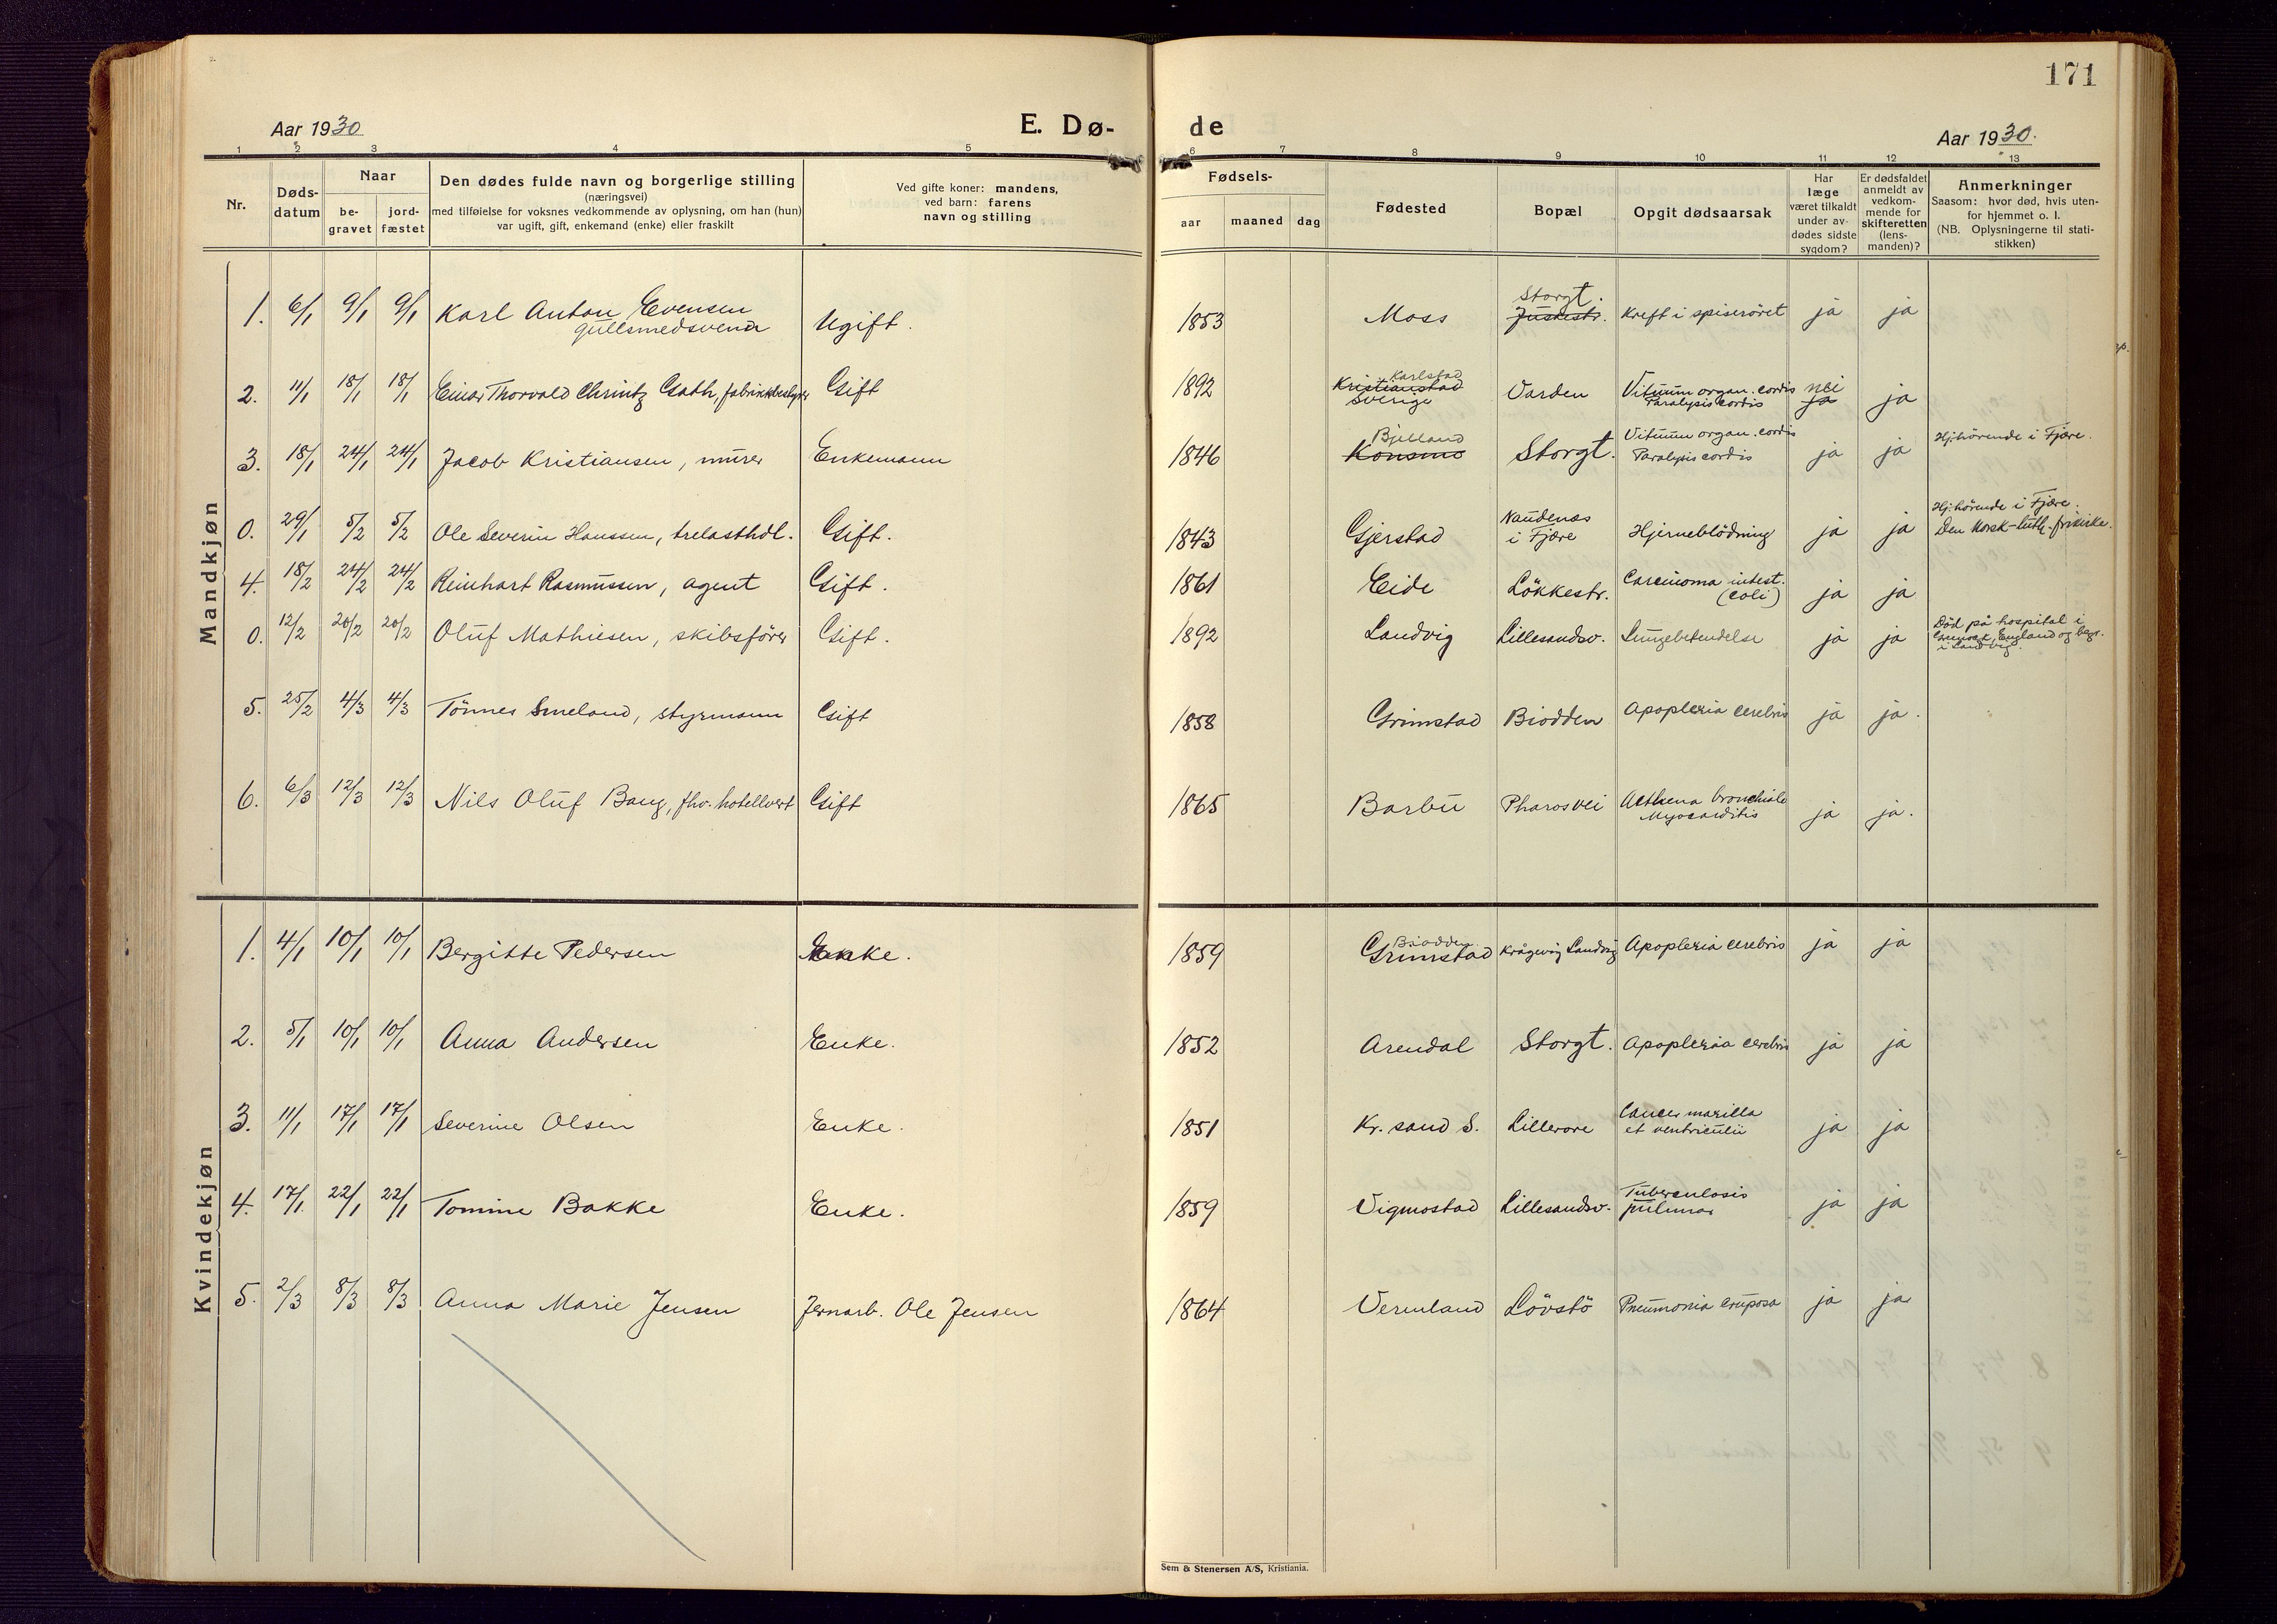 171
Aar 1930
E. Dø-
de
Aar 1930.
1 2 3 4 5 6 7 8 9 10 11 12 13
Nr.
Døds-
datum
Naar
be-
gravet
jord-
fæstet
Den dødes fulde navn og borgerlige stilling
(næringsvei)
med tilføielse for voksnes vedkommende av oplysning, om han (hun)
var ugift, gift, enkemand (enke) eller fraskilt
Ved gifte koner: mandens,
ved barn: farens
navn og stilling
Fødsels-
aar maaned dag
Fødested
Bopæl
Opgit dødsaarsak
Har
læge
været tilkaldt
under av-
dødes sidste
sygdom?
Er dødsfaldet
anmeldt av
vedkom-
mende for
skifteretten
(lens-
manden)?
Anmerkninger
Saasom: hvor død, hvis uten-
for hjemmet o. l.
(NB. Oplysningerne til stati-
stikken)
Mandkjøn
1. 6/1 9/1 9/1 Karl Anton Evensen
gullsmedsvend
Ugift.
1853 Moss
Storgt.
Juskestr.
Kreft i spiserøret ja ja
2. 11/1 18/1 18/1 Einar Thorvald Chrintz Gath, fabrikkbestyrer Gift
1892
Karlstad
Kristianstad
Sverige
Varden
Vitium organ. cordis
Paralysis cordis
nei
ja
ja
3. 18/1 24/1 24/1 Jacob Kristiansen, murer Enkemann
1846
Bjelland
Konsmo
Storgt.
Vitium organ. cordis
Paralysis cordis
ja ja
Hj.hörende i Fjære.
0. 29/1 5/2 5/2 Ole Severin Hanssen, trelasthdl. Gift.
1843 Gjerstad
Naudenes
i Fjære
Hjerneblödning ja ja
Hj.hörende i Fjære.
Den Norsk-luth. frikirke.
4. 18/2 24/2 24/2 Reinhart Rasmussen, agent Gift.
1861 Eide Lökkestr.
Carcinoma intest.
(coli)
ja ja
0. 12/2 20/2 20/2 Oluf Mathiesen, skibsförer Gift.
1892 Landvig Lillesandsv. Lungebetendelse ja ja
Död på hospital i
England og begr.
i Landvig.
5. 25/2 4/3 4/3 Tönnes Smeland, styrmann Gift
1858 Grimstad Biodden Apoplexia cerebris ja ja.
6. 6/3 12/3 12/3 Nils Oluf Bang, fhv. hotellvert Gift
1865 Barbu Pharosvei
Asthma bronchiale
Myocarditis
ja ja.
Kvindekjøn
1. 4/1 10/1 10/1 Bergitte Pedersen Enke.
1859
Biodden
Grimstad
Krågevig Landvig Apoplexia cerebris ja ja
2. 5/1 10/1 10/1 Anna Andersen Enke.
1852 Arendal Storgt. Apoplexia cerebris ja ja
3. 11/1 17/1 17/1 Severine Olsen Enke.
1851 Kr. sand S. Lillerore
Cancer maxilla
et ventriculii
ja ja
4. 17/1 22/1 22/1 Tomine Bakke Enke.
1859 Vigmostad Lillesandsv.
Tuberculosis
pulmar
ja ja
5. 2/3 8/3 8/3 Anna Marie Jensen Jernarb. Ole Jensen
1864 Vermland Lövstö Pneumonia cruposa ja ja
Sem & Stenersen A/S, Kristiania.